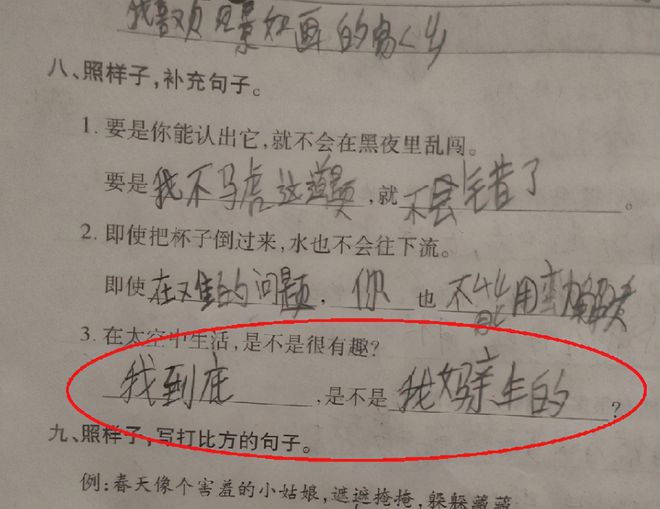 我喜欢风景如画的家乡
八、照样子,补充句子。
1. 要是你能认出它,就不会在黑夜里乱闯。
要是我不马虎这道题,就不会错了。
2. 即使把杯子倒过来,水也不会往下流。
即使在难的问题,你也不能用蛮力解决
3. 在太空中生活,是不是很有趣?
我到底,是不是我妈亲生的?
九、照样子,写打比方的句子。
例:春天像个害羞的小姑娘,遮遮掩掩,躲躲藏藏